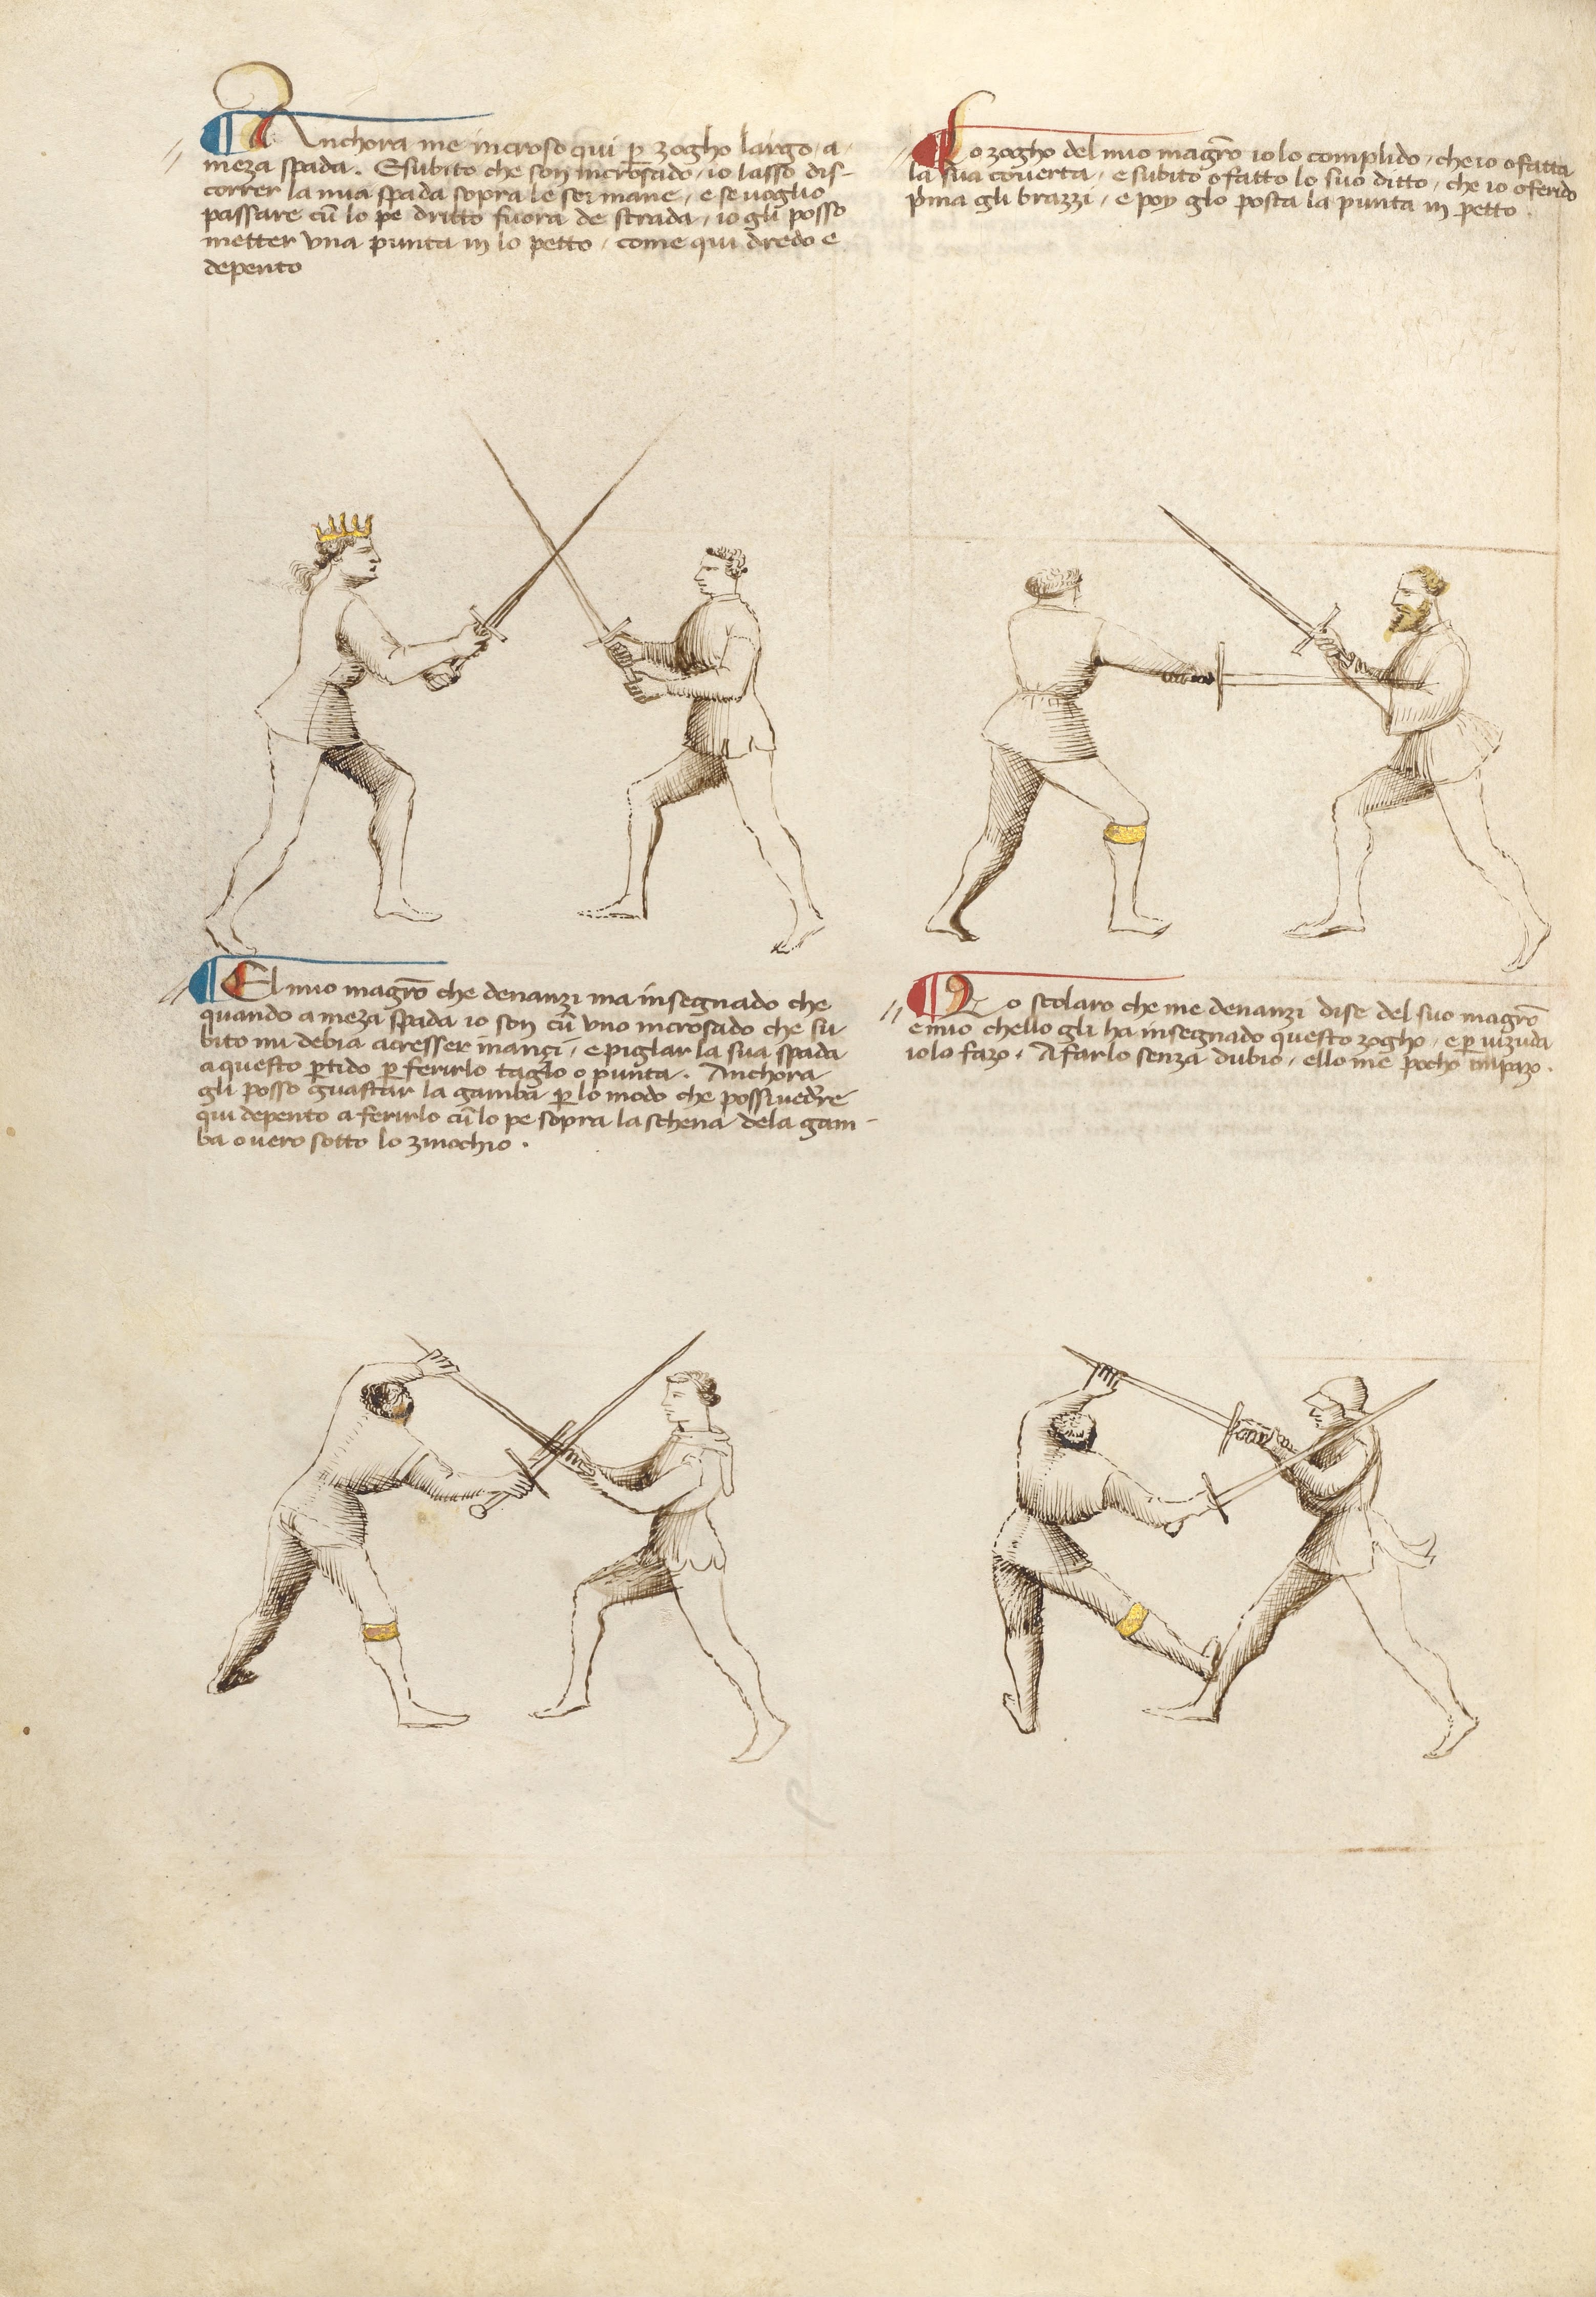 Anchora me incroso qui p̱ zogho largo / a /
meza spada. E subito che son incrosado / io lasso dis-
correr la mia spada sopra le soi mane / e se uoglio
passare cu̅ lo pe dritto fuora de strada / io gli posso
metter vna punta in lo petto / come qui dredo e
depento
Lo zogho del mio magr̅o io lo complido / che io o fatta
la sua couerta / e subito o fatto lo suo ditto / che io o ferido
p̱ma gli brazzi / e poy glo posta la punta in petto .
El mio magr̅o che denanzi ma insegnado che
quando a meza spada io son cu̅ vno incrosado che su-
bito mi debia acresser inançi / e piglar la sua spada
a questo p̱tido p̱ ferirlo taglo o punta . Anchora
gli posso guastar la gamba p̱ lo modo che possi uedr̅e
qui depento a ferirlo cu̅ lo pe sopra la schena dela gam-
ba ouero sotto lo zinochio .
Lo scolaro che me denanzi dise del suo magr̅o
e mio chello gli ha insegnado questo zogho / e p̱ uizuda
io lo fazo . A farlo senza dubio / ello me̅ pocho impazo .